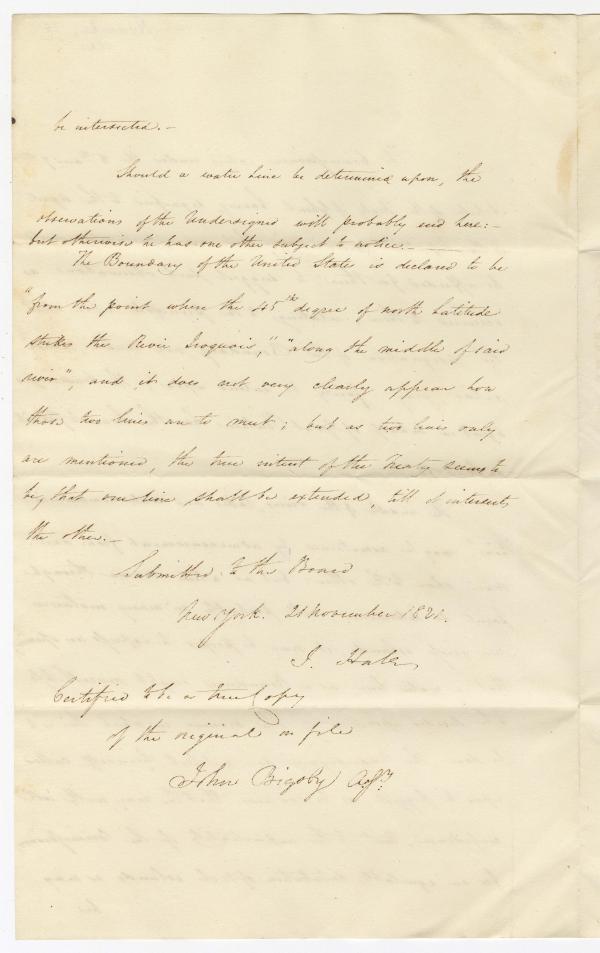 be intersected.—
Should a water Line be determined upon, the
observations of the Undersigned will probably end here:—
but otherwise he has one other subject to notice.—
The Boundary of the United States is declared to be
"from the point where the 45th degree of north Latitude
strikes the River Iroquois," "along the middle of said
river", and it does not very clearly appear how
those two lines are to meet; but as two lines only
are mentioned, the true intent of the Treaty seems to
be, that one line shall be extended, till it intersects
the other.—
Submitted to the Board
New York. 21 November 1821.
J. Hale
Certified to be a true Copy
of the original on file
John Bigsby